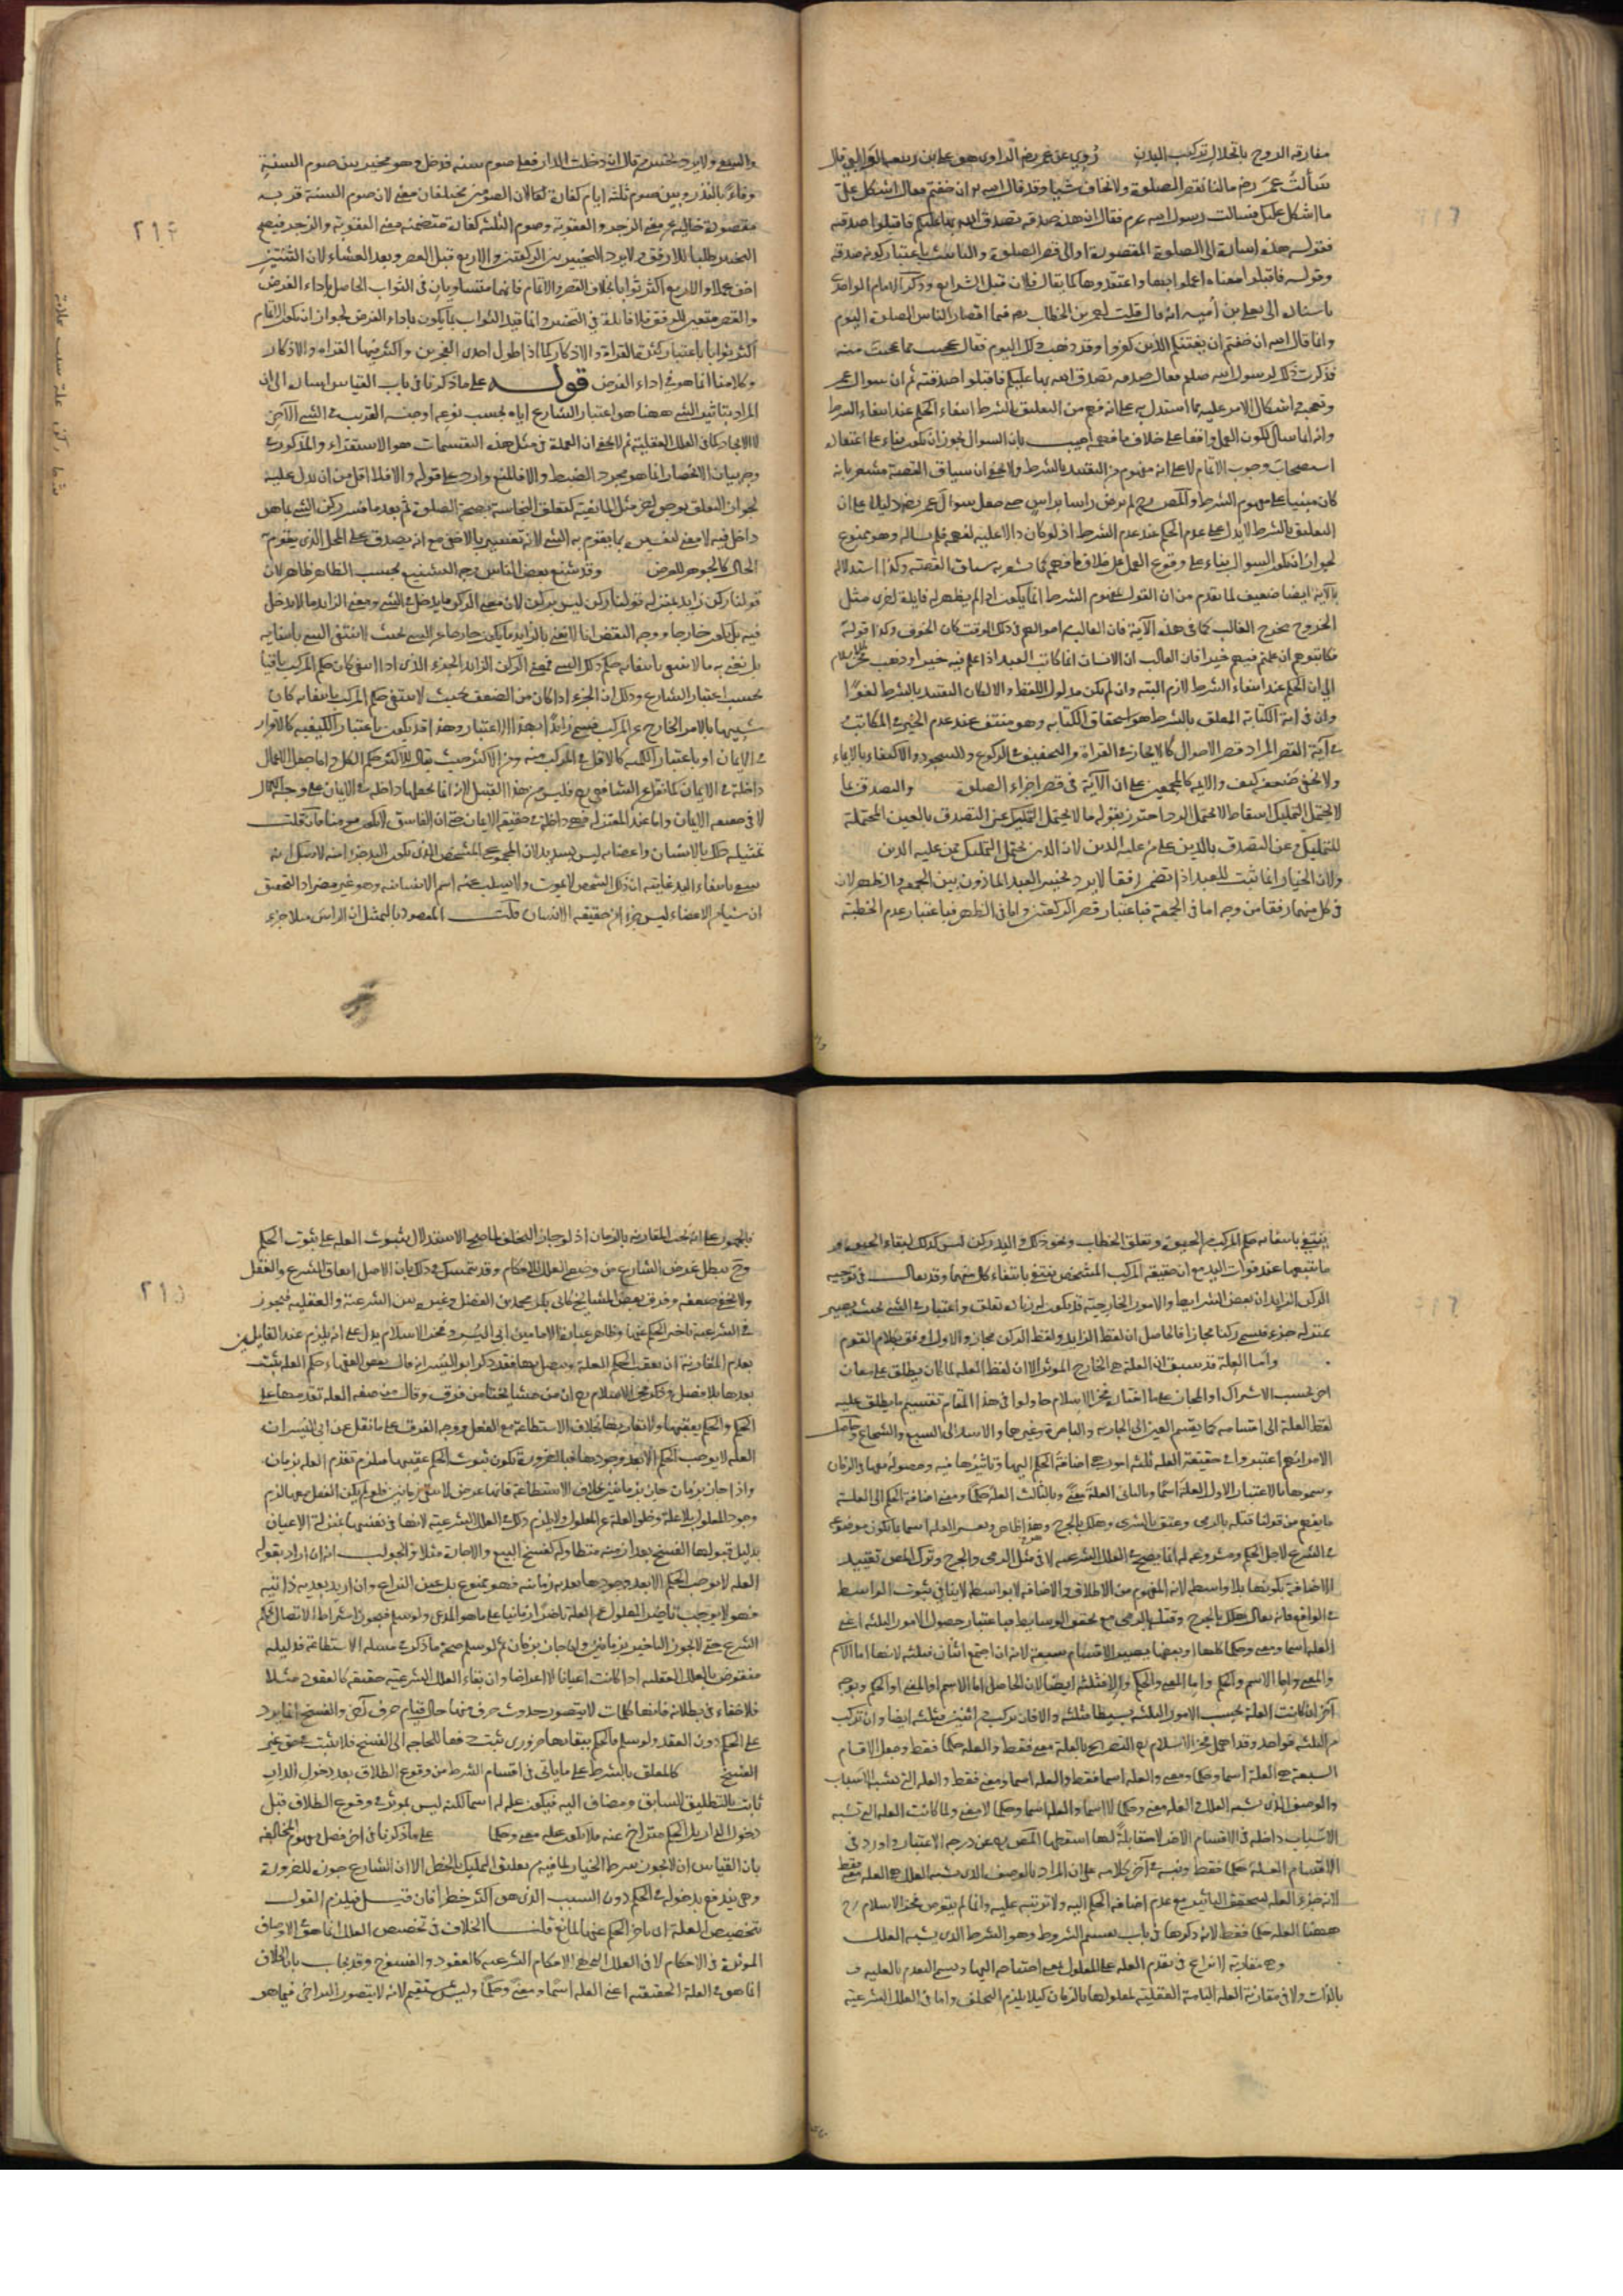 مفارقة الروح بانحلال تركيب البدن روي عن عمر رضه الراوى هو على بن ربيعه الوالبى قال
سألت عمر رضه ما لنا نقصر الصلوة ولا نخاف شيئا وقد قال الله تع ان خفتم فقال اشكل على
ما اشكل عليك فسالت رسول الله عم فقال ان هذه صدقه تصدق الله بها عليكم فاقبلوا صدقته
فقوله هذه اشارة الى الصلوة المقصورة او الى قصر الصلوة والتانيث باعتبار كونه صدقة
وقوله فاقبلوا معناه اعملوا بها واعتقدوها كما يقال فلان قبل الشرايع وذكر الامام الواحدى
باسناده الى يعلى بن أمية انه قال قلت لعمر بن الخطاب رضه فيما اقصار الناس الصلوة اليوم
وانما قال الله ان خفتم ان يفتنكم الذين كفروا وقد ذهب ذلك اليوم فقال عجبت مما عجبت منه
فذكرت ذلك لرسول الله صلعم فقال صدقة تصدق الله بها عليكم فاقبلوا صدقته ثم ان سوال عمر
وتعجبه واشكال الامر عليه مما استدل به على انه فهم من التعليق بالشرط انتفاء الحكم عند انتفاء الشرط
وانه انما سأل لكون العمل واقعا على خلاف ما فهمه اجيب بان السوال يجوز ان يكون بناء على اعتقاد
استصحاب وجوب الاتمام لا على انه مفهوم من التقييد بالشرط ولا يخفى ان سياق القصة مشعر بانه
كان مبنيا على مفهوم الشرط والمص رح لم يرض راسا براس حتى جعل سوال عمر رضه دليلا على ان
التعليق بالشرط لا يدل على عدم الحكم عند عدم الشرط اذ لو كان دالا عليه لفهمه فلم يساله وهو ممنوع
لجواز ان يكون السوال بناء على وقوع العمل على خلاف ما فهمه كما يشعر به سياق القصة وكذا استدلاله
بالآية ايضا ضعيف لما تقدم من ان القول بمفهوم الشرط انما يكون اذا لم يظهر له فايدة اخرى مثل
الخروج مخرج الغالب كما فى هذه الآية فان الغالب من احوالهم فى ذلك الوقت كان الخوف وكذا قوله تع
فكاتبوهم ان علمتم فيهم خيرا فان الغالب ان الانسان انما يكاتب العبد اذا علم فيه خيرا وذهب فخر الاسلام
الى ان الحكم عند انتفاء الشرط لازم البتة وان لم يكن مدلول اللفظ والا لكان التقييد بالشرط لغوا
وان فى اية الكتابة المعلق بالشرط هو استحقاق الكتابه وهو منتف عند عدم الخير فى المكاتب
وفى آية القصر المراد قصر الاحوال كالايجاز فى القراة والتخفيف فى الركوع والسجود والاكتفاء بالايماء
ولا يخفى ضعفه كيف والايمة كالمجمعين على ان الآية فى قصر اجزاء الصلوة والتصدق بما
لا يحتمل التمليك اسقاط لا يحتمل الرد احترز بقوله ما لا يحتمل التمليك عن التصدق بالعين المحتملة
للتمليك وعن التصدق بالدين على من عليه الدين لان الدين يحتمل التمليك ممن عليه الدين
ولان الخيار انما ثبت للعبد اذا تضمن رفقا لا يرد تخيير العبد الماذون بين الجمعة والظهر لان
فى كل منهما رفقا من وجه اما فى الجمعة فباعتبار قصر الركعتين واما فى الظهر فباعتبار عدم الخطبة
والسعى ولا يرد تخيير من قال ان دخلت الدار فعلى صوم سنه فدخل وهو مخير بين صوم السنة
وفاء بالنذر وبين صوم ثلثة ايام كفارة لفا لان الصومين مختلفان معنى لان صوم السنة قربه
مقصودة خالية عن معنى الزجر والعقوبة وصوم الثلثة كفارة متضمنة معنى العقوبة والزجر فيصح
التخيير طلبا للارفق ولا يرد التخيير بين الركعتين والاربع قبل العصر وبعد العشاء لان الثنتين
اخف عملا والاربع اكثر ثوابا بخلاف القصر والاتمام فانهما متساويان فى الثواب الحاصل باداء الفرض
والقصر متعين للرفق فلا فايدة فى التخيير وانما قيد الثواب بما يكون باداء الفرض لجواز ان يكون الاتمام
اكثر ثوابا باعتبار كثرة القراة والاذكار كما اذا طول احدى الفجرين واكثر فيها القراة والاذكار
وكلامنا انما هو فى اداء الفرض قوله على ما ذكرنا فى باب القياس اشارة الى ان
المراد بتاثير الشى ههنا هو اعتبار الشارع اياه بحسب نوعه او جنسه القريب فى الشى الآخر
لا الايجاد كما فى العلل العقلية ثم لا يخفى ان العمدة فى مثل هذه التقسيمات هو الاستقراء والمذكور فى
وجه بيان الانحصار انما هو مجرد الضبط والا فالمنع وارد على قوله والا فلا اقل من ان يدل عليه
لجواز التعلق بوجه آخر مثل المانعية كتعلق النجاسة بصحة الصلوة ثم بعد ما فسر ركن الشى بما هو
داخل فيه لا معنى لتفسيره بما يقوم به الشى لانه تفسير بالاخفى مع انه يصدق على المحل الذى يقوم به
الحال كالجوهر للعرض وقد شنع بعض الناس وجه التشنيع بحسب الظاهر ظاهر لان
قولنا ركن زايد بمنزلة قولنا ركن ليس بركن لان معنى الركن ما يدخل فى الشى ومعنى الزايد ما لا يدخل
فيه بل يكون خارجا ووجه التفصى انا لا نعنى بالزايد ما يكون خارجا عن الشى بحيث لا ينتفى الشى بانتفايه
بل نعنى به ما لا ينتفى بانتفايه حكم ذلك الشى فمعنى الركن الزايد الجزء الذى اذا انتفى كان حكم المركب باقيا
بحسب اعتبار الشارع وذلك ان الجزء اذا كان من الضعف بحيث لا ينتفى حكم المركب بانتفائه كان
شبيها بالامر الخارج عن المركب فسمى زائدا بهذا الاعتبار وهذا قد يكون باعتبار الكيفية كالاقرار
فى الايمان او باعتبار الكمية كالاقل فى المركب منه ومن الاكثر حيث يقال للاكثر حكم الكل واما جعل الاعمال
داخلة فى الايمان كما نقل عن الشافعى رح فليس من هذا القبيل لانه انما يجعلها داخلة فى الايمان على وجه الكمال
لا فى حقيقة الايمان واما عند المعتزلة فهى داخلة فى حقيقة الايمان حتى ان الفاسق لا يكون مومنا فان قلت
تمثيله ذلك بالانسان واعضائه ليس بسديد لان المجموع المشخص الذى يكون اليد جزءا منه لا شك انه
ينتفى بانتفاء اليد غايته ان ذلك الشخص لا يموت ولا يسلب عنه اسم الانسانية وهو غير مضر اذ التحقيق
ان شيئا من الاعضاء ليس بجزء من حقيقة الانسان قلت المقصود بالتمثيل ان الراس مثلا جزء
٢١٤
ينتفى بانتفائه حكم المركب من الحيوة وتعلق الخطاب ونحو ذلك واليد ركن ليس كذلك لبقاء الحيوة و
ما يتبعها عند فوات اليد مع ان حقيقة المركب المشخص ينتفى بانتفاء كل منهما وقد يقال فى توجيه
الركن الزايد ان بعض الشرايط والامور الخارجية قد يكون له زيادة تعلق واعتبار فى الشى بحيث يصير
بمنزلة جزء فيسمى ركنا مجازا فالحاصل ان لفظ الزايد او لفظ الركن مجاز والاول اوفق بكلام القوم
واما العلة قد سبق ان العلة هى الخارج الموثر الا ان لفظ العلة لما كان يطلق على معان
اخر بحسب الاشتراك او المجاز على ما اختاره فخر الاسلام حاولوا فى هذا المقام تقسيم ما يطلق عليه
لفظ العلة الى اقسامه كما يقسم العين الى الجارية والباصرة وغيرها والاسد الى السبع والشجاع وحاصل
الامر انهم اعتبروا فى حقيقة العلة ثلثة امور هى اضافة الحكم اليها وتاثيرها فيه وحصوله معها فى الزمان
وسموها بالاعتبار الاول العلة اسما وبالثانى العلة معنى وبالثالث العلة حكما ومعنى اضافة الحكم الى العلة
ما يفهم من قولنا قتله بالرمى وعتق بالشرى وهلك بالجرح وهذا ظاهر وتفسير العلة اسما بما يكون موضوعة
فى الشرع لاجل الحكم ومشروعة له انما يصح فى العلل الشرعية لا فى مثل الرمى والجرح وترك المص تقييد
الاضافة بكونها بلا واسطه لانه المفهوم من الاطلاق والاضافة بلا واسطه لا ينافى ثبوت الواسطة
فى الواقع فانه يقال هلك بالجرح وقتله بالرمى مع تحقق الوسايط فباعتبار حصول الامور الثلثة اعنى
العلة اسما ومعنى وحكما كلها او بعضها يصير الاقسام سبعة لانه ان اجتمع اثنان فثلثة لانهما اما الاسم
والمعنى واما الاسم والحكم واما المعنى والحكم والا فثلثة ايضا لان الحاصل اما الاسم او المعنى او الحكم وبوجه
آخر ان كانت العلة بحسب الامور الثلثة بسيطا فثلثة والا فان تركب من اثنين فثلثة ايضا وان تركب
من الثلثة فواحد وقد اهمل فخر الاسلام رح التصريح بالعلة معنى فقط والعلة حكما فقط وجعل الاقسام
السبعة هى العلة اسما وحكما ومعنى والعلة اسما فقط والعلة اسما ومعنى فقط والعلة التى تشبه الاسباب
والوصف الذى يشبه العلل والعلة معنى وحكما لا اسما والعلة اسما وحكما لا معنى ولما كانت العلة التى تشبه
الاسباب داخلة فى الاقسام الاخر لا مقابلة لها اسقطها المص رح عن درجة الاعتبار واورد فى
الاقسام العلة حكما فقط ونبه فى آخر كلامه على ان المراد بالوصف الذى يشبه العلل هى العلة معنى فقط
لانه جزء العلة لتحقق التاثير مع عدم اضافة الحكم اليه ولا ترتبه عليه وانما لم يتعرض فخر الاسلام رح
ههنا العلة حكما فقط لانه ذكرها فى باب تقسيم الشروط وهو الشرط الذى يشبه العلل
وهى مقارنة لا نزاع فى تقدم العلة على المعلول بمعنى احتياجه اليها ويسمى التقدم بالعلية و
بالذات ولا فى مقارنة العلة التامة العقلية لمعلولها بالزمان كيلا يلزم التخلف واما فى العلل الشرعية
فالجمهور على انه تجب المقارنة بالزمان اذ لو جاز التخلف لما صح الاستدلال بثبوت العلة على ثبوت الحكم
وح يبطل غرض الشارع من وضع العلل للاحكام وقد يتمسك فى ذلك بان الاصل اتفاق الشرع والعقل
ولا يخفى ضعفه وفرق بعض المشايخ كابى بكر محمد بن الفضل وغيره بين الشرعية والعقلية فيجوز
فى الشرعية تاخر الحكم عنها وظاهر عبارة الامامين ابى اليسر وفخر الاسلام يدل على انه يلزم عند القايلين
بعدم المقارنة ان يعقب الحكم العلة ويتصل بها فقد ذكر ابو اليسر انه قال بعض الفقهاء حكم العلة يثبت
بعدها بلا فصل وذكر فخر الاسلام رح ان من مشايخنا من فرق وقال من صفة العلة تقدمها على
الحكم والحكم يعقبها ولا يقارنها بخلاف الاستطاعة مع الفعل ووجه الفرق على ما نقل عن ابى اليسر ان
العلة لا توجب الحكم الا بعد وجودها فبالضرورة يكون ثبوت الحكم عقيبها فيلزم تقدم العلة بزمان
واذا جاز بزمان جاز بزمانين بخلاف الاستطاعة فانها عرض لا يبقى زمانين فلو لم يكن الفعل معها لزم
وجود المعلول بلا علة وخلو العلة عن المعلول ولا يلزم ذلك فى العلل الشرعية لانها فى نفسها بمنزلة الاعيان
بدليل قبولها الفسخ بعد ازمنة متطاولة كفسخ البيع والاجارة مثلا والجواب انه ان اراد بقوله
العلة لا توجب الحكم الا بعد وجودها بعدية زمانية فهو ممنوع بل عين النزاع وان اريد بعدية ذاتية
فهو لا يوجب تاخر المعلول عن العلة تاخرا زمانيا على ما هو المدعى ولو سلم فيجوز اشتراط الاتصال بحكم
الشرع حتى لا يجوز التاخير بزمانين وان جاز بزمان ثم لو سلم صحة ما ذكر فى مسئلة الاستطاعة فدليله
منقوض بالعلل العقلية اذا كانت اعيانا لا اعراضا وان بقاء العلل الشرعية حقيقة كالعقود مثلا
فلا خفاء فى بطلانه فانها كلمات لا يتصور حدوث حرف منها حال قيام حرف آخر والفسخ انما يرد
على الحكم دون العقد ولو سلم فالحكم ببقائها ضرورى ثبت دفعا للحاجة الى الفسخ فلا يثبت فى حق غير
الفسخ كالمعلق بالشرط على ما ياتى فى اقسام الشرط من وقوع الطلاق بعد دخول الدار
ثابت بالتطليق السابق ومضاف اليه فيكون علة له اسما لكنه ليس بموثر فى وقوع الطلاق قبل
دخول الدار بل الحكم متراخ عنه فلا يكون علة معنى وحكما على ما ذكرنا فى اخر فصل مفهوم المخالفة
بان القياس ان لا يجوز شرط الخيار لما فيه من تعليق التمليك بالخطر الا ان الشارع جوزه للضرورة
وهى يندفع بدخوله فى الحكم دون السبب الذى هو اكثر خطرا فان قيل فيلزم القول
بتخصيص العلة ان تاخر الحكم عنها لمانع قلنا الخلاف فى تخصيص العلل انما هو فى الاوصاف
الموثرة فى الاحكام لا فى العلل التى هى الاحكام الشرعية كالعقود والفسوخ وقد يجاب بان الخلاف
انما هو فى العلة الحقيقية اعنى العلة اسما ومعنى وحكما وليس بمستقيم لانه لا يتصور التراخى فيما هو
٢١٥